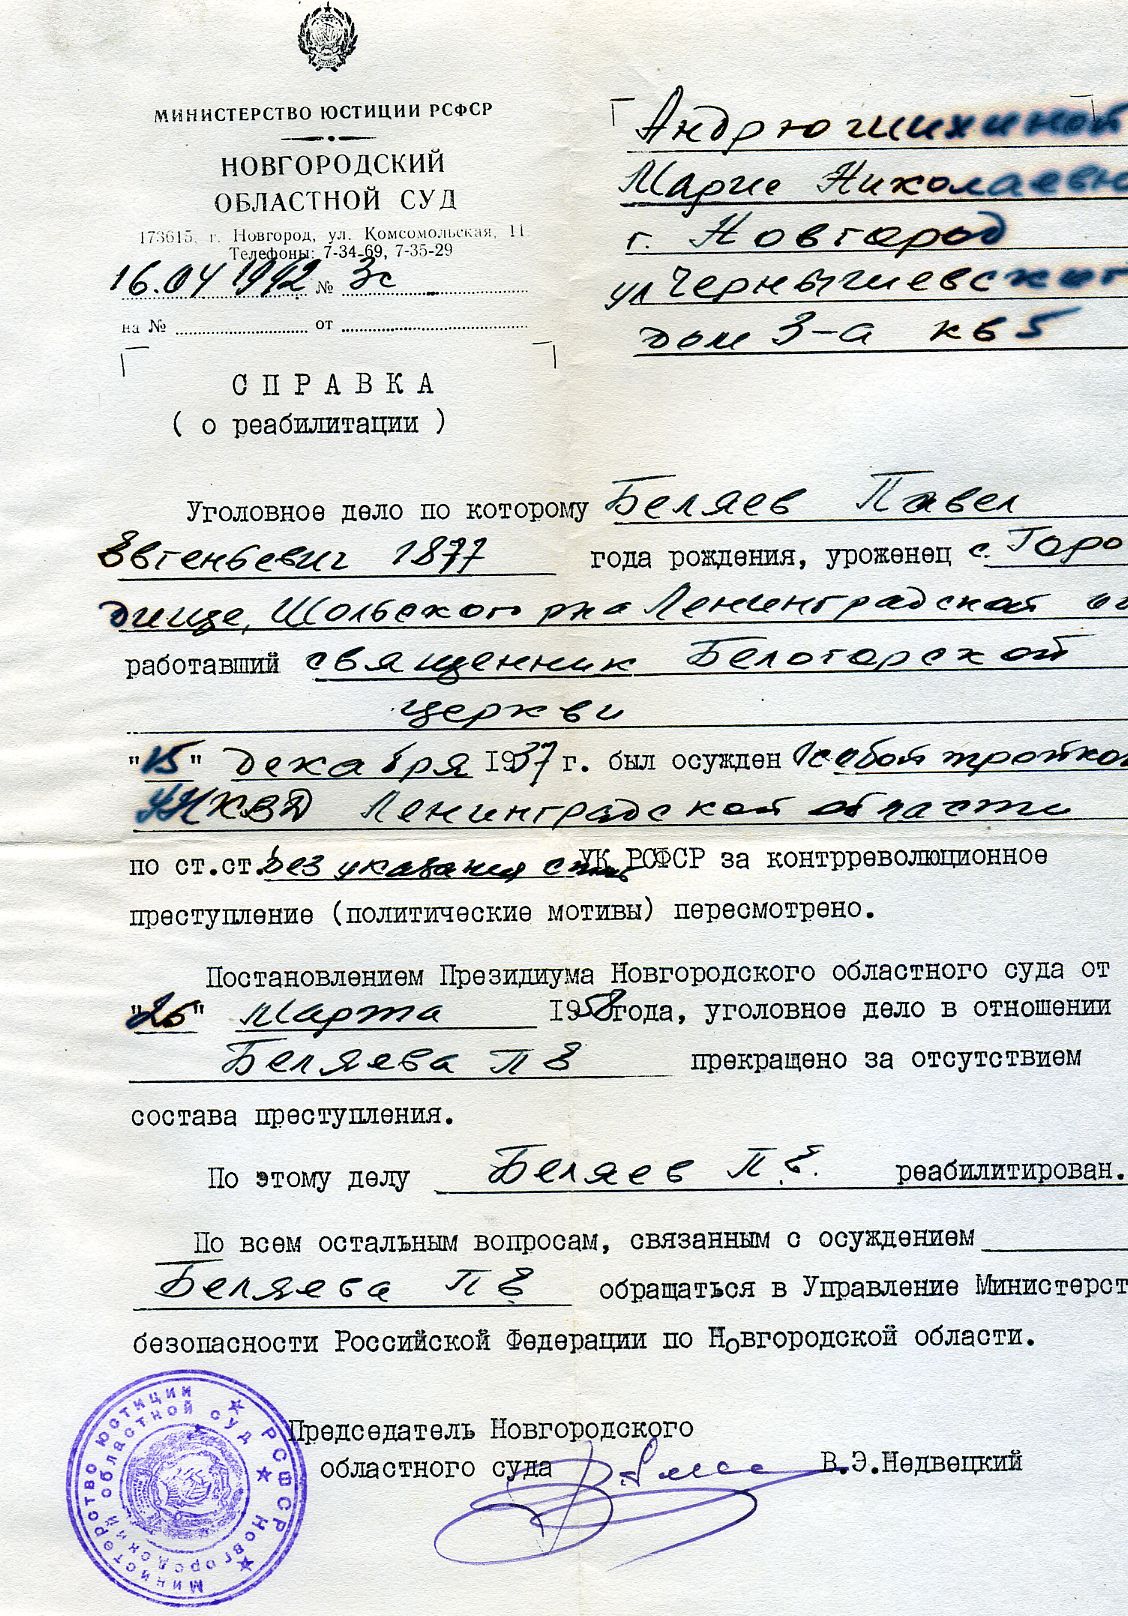 МИНИСТЕРСТВО ЮСТИЦИИ РСФСР
НОВГОРОДСКИЙ
ОБЛАСТНОЙ СУД
173615, г. Новгород, ул. Комсомольская, 11
Телефоны: 7-34-69, 7-35-29
16.04 1992 № 3с
на № от
Андрюшихиной
Марие Николаевн
г. Новгород
ул Чернышевског
дом 3-а кв 5
СПРАВКА
( о реабилитации )
Уголовное дело по которому Беляев Павел
Евгеньевич 1877 года рождения, уроженец с. Горо
дище, Шольского р-на Ленинградской об
работавший священник Белогорской
церкви
"15" декабря 1937 г. был осужден Особой тройкой
УНКВД Ленинградской области
по ст.ст. без указания УК РСФСР за контрреволюционное
преступление (политические мотивы) пересмотрено.
Постановлением Президиума Новгородского областного суда от
"26" марта 1958 года, уголовное дело в отношении
Беляева П Е прекращено за отсутствием
состава преступления.
По этому делу Беляев П.Е. реабилитирован.
По всем остальным вопросам, связанным с осуждением
Беляева П Е обращаться в Управление Министерст
безопасности Российской Федерации по Новгородской области.
Председатель Новгородского
областного суда В.Э.Недвецкий
Министерство юстиции ★ РСФСР ★ Новгородский областной суд ★